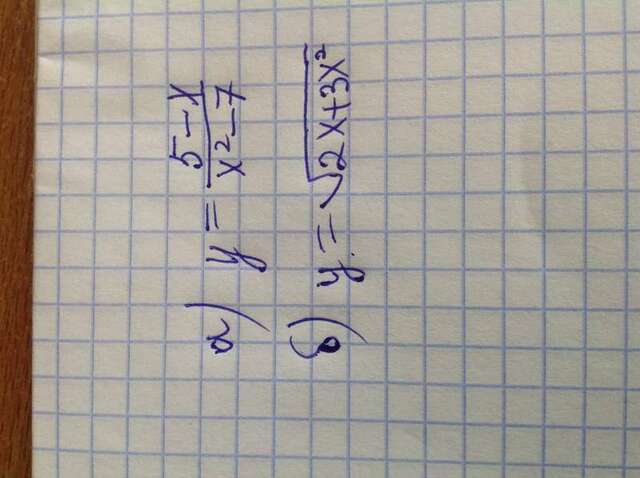 а) y = (5 - x)/(x² - 7)
б) y = √(2x + 3x²)